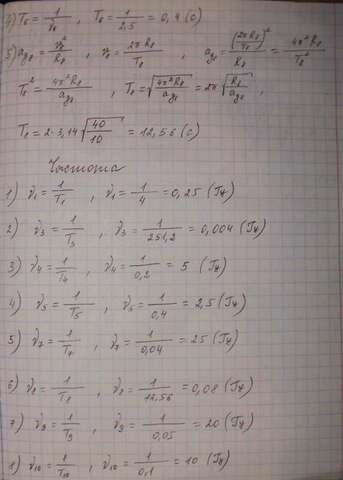 7) T₇ = 1/ν₇ , T₈ = 1/2,5 = 0,4 (с)
8) a_g₈ = v₈²/R₈ , v₈ = 2πR₈/T₈ , a_g₈ = (2πR₈/T₈)²/R₈ = 4π²R₈/T₈²
T₈² = 4π²R₈/a_g₈ , T₈ = √(4π²R₈/a_g₈) = 2π√(R₈/a_g₈) ,
T₈ = 2·3,14√(40/10) = 12,56 (с)
Частота
1) ν₁ = 1/T₁ , ν₁ = 1/4 = 0,25 (Гц)
2) ν₃ = 1/T₃ , ν₃ = 1/251,2 = 0,004 (Гц)
3) ν₄ = 1/T₄ , ν₄ = 1/0,2 = 5 (Гц)
4) ν₅ = 1/T₅ , ν₅ = 1/0,4 = 2,5 (Гц)
5) ν₇ = 1/T₇ , ν₇ = 1/0,04 = 25 (Гц)
6) ν₈ = 1/T₈ , ν₈ = 1/12,56 = 0,08 (Гц)
7) ν₉ = 1/T₉ , ν₉ = 1/0,05 = 20 (Гц)
8) ν₁₀ = 1/T₁₀ , ν₁₀ = 1/0,1 = 10 (Гц)